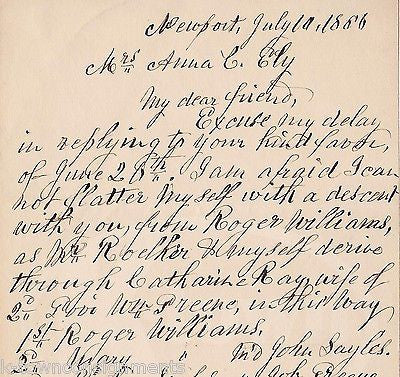 Newport, July 10, 1886
Mrs Anna C. Ely
My dear friend,
Excuse my delay
in replying to your kind favor,
of June 28th. I am afraid I can
not flatter myself with a descent
with you, from Roger Williams,
as Mr Roelker & myself derive
through Catharine Ray, wife of
2d Gov Wm Greene, in this way
1st Roger Williams.
2d Mary " m'd John Sayles.
John Greene